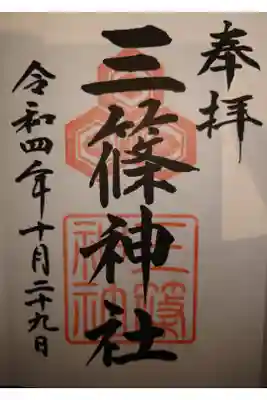 奉拝
三篠神社
令和四年十月二十九日
三篠神社